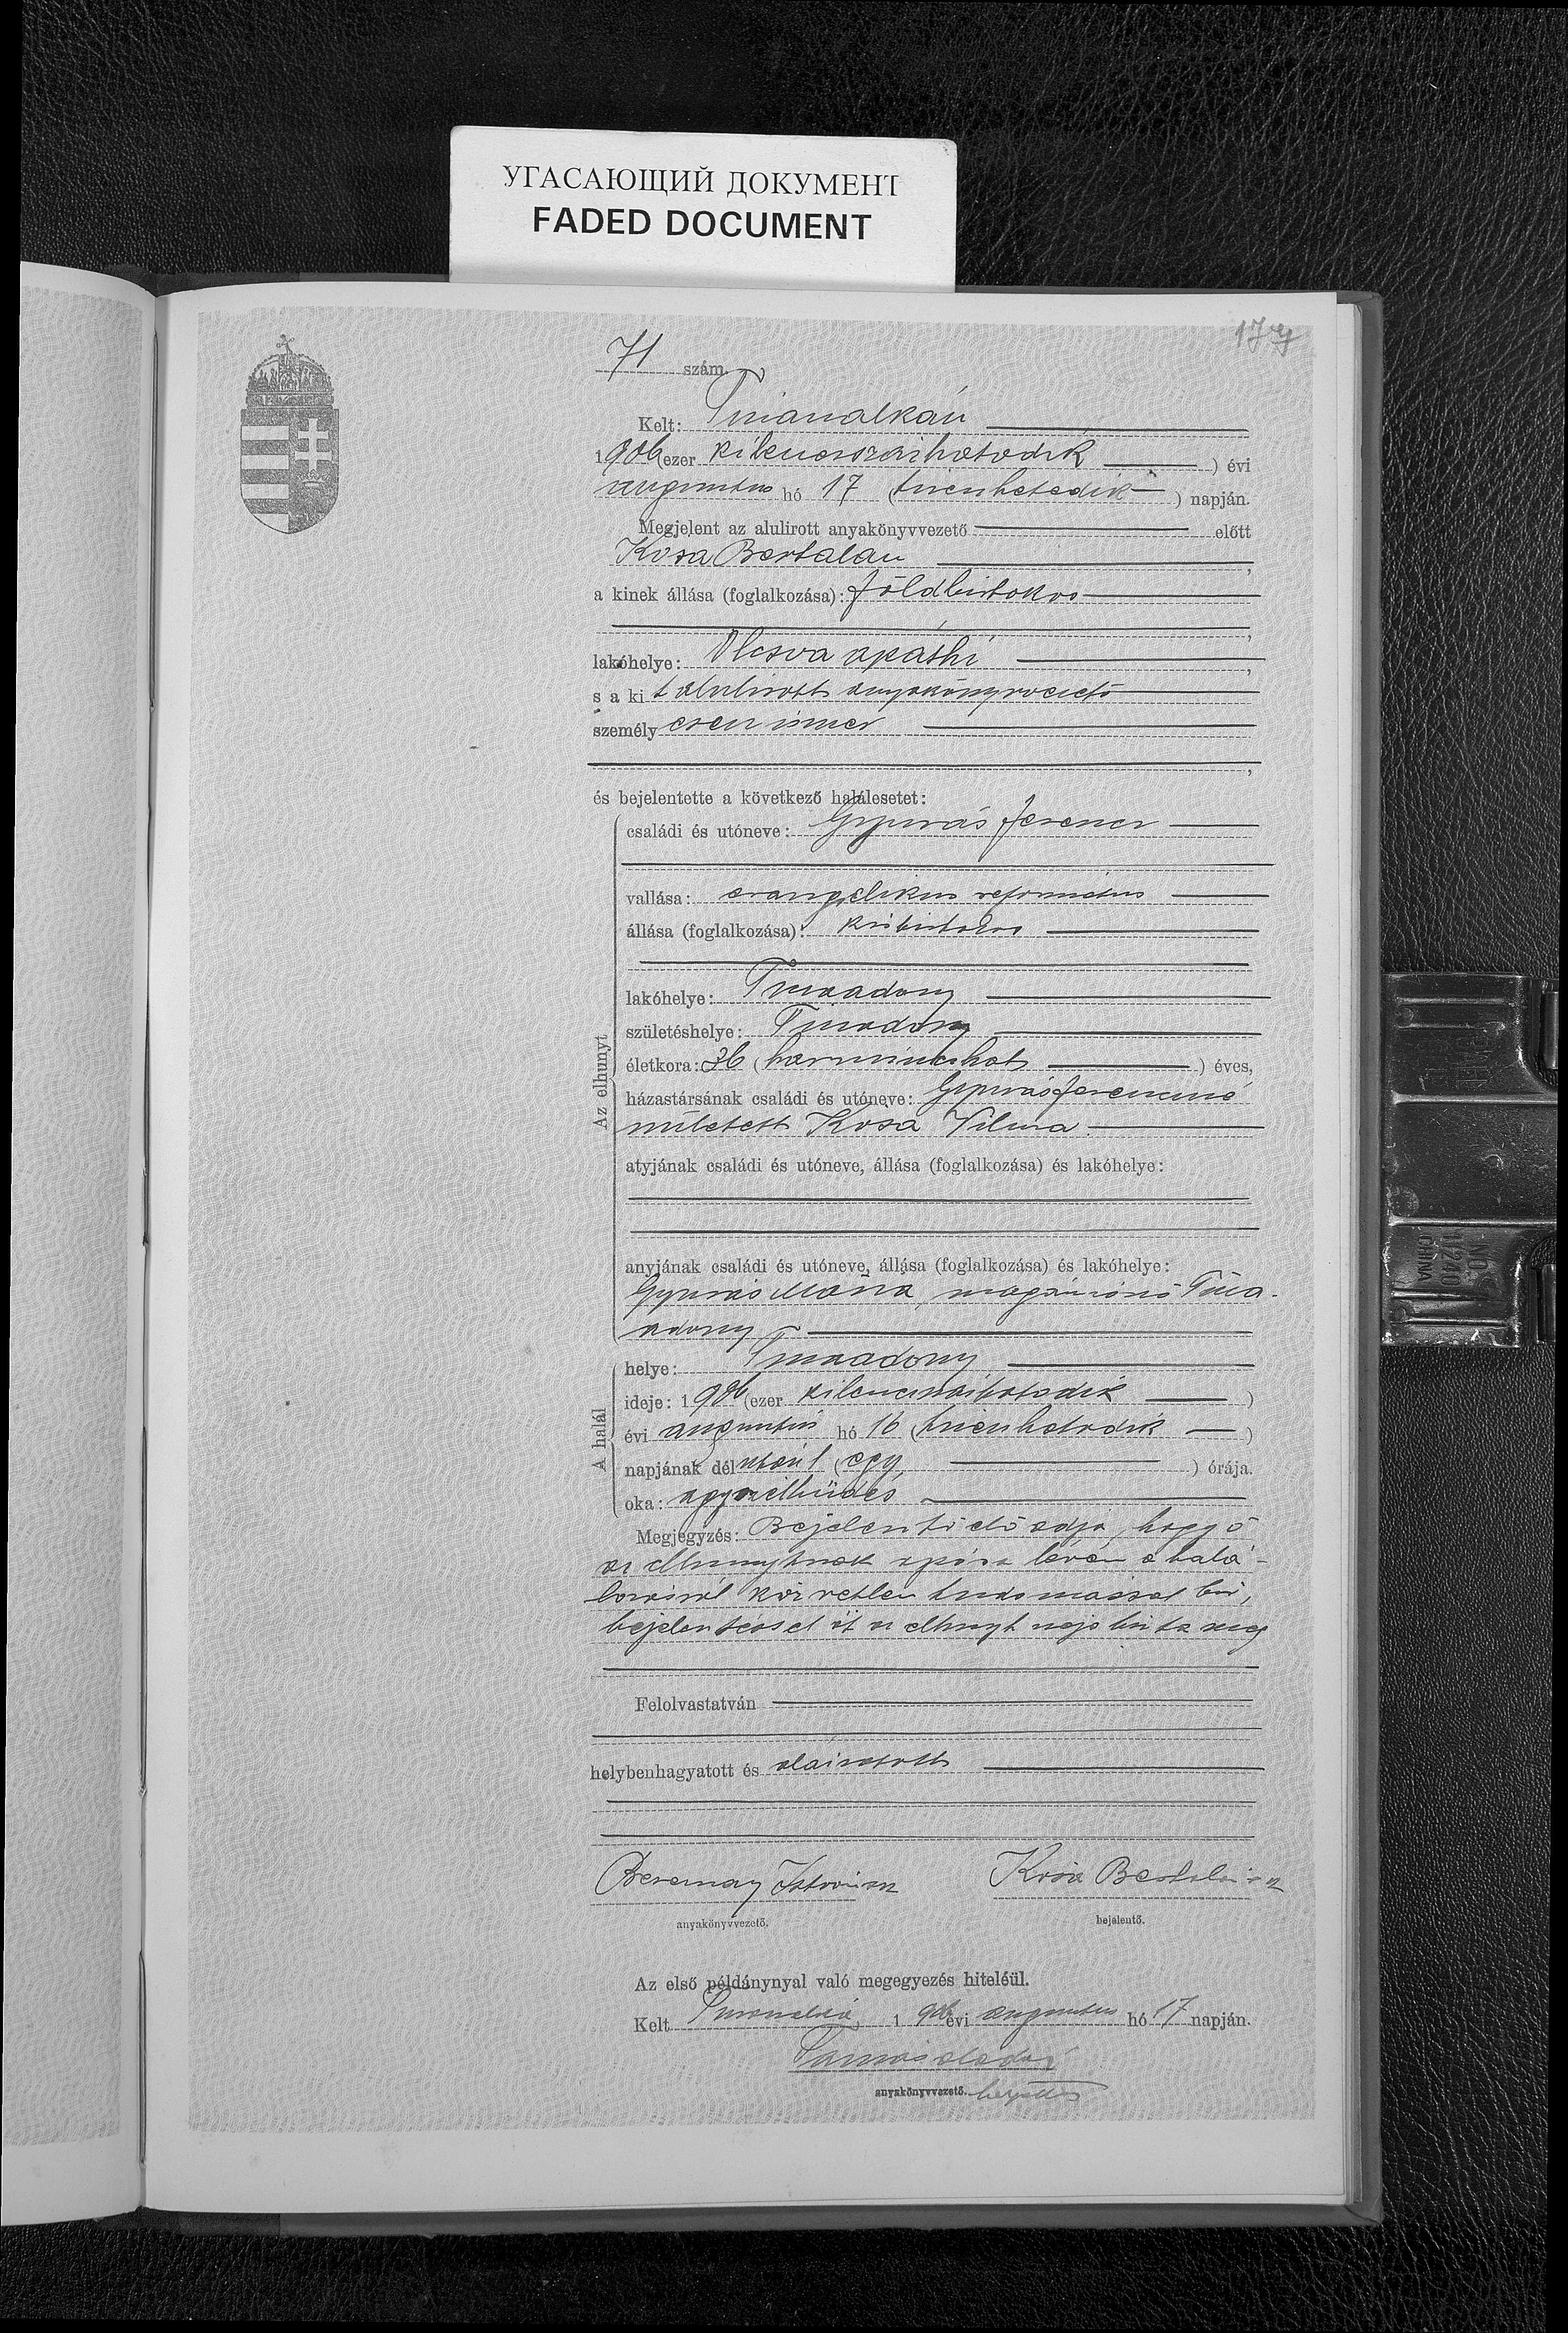 УГАСАЮЩИЙ ДОКУМЕНТ
FADED DOCUMENT
71 szám.
Kelt:
1906 (ezer kilenczszázhatodik) évi
augusztus hó 17 (tizenhetedik) napján.
Megjelent az alulirott anyakönyvvezető előtt
Kósa Bertalan,
a kinek állása (foglalkozása): földbirtokos
lakóhelye: Olcsva apáthi,
s a kit alulirott anyakönyvvezető
személyesen ismer,
és bejelentette a következő halálesetet:
Az elhunyt
családi és utóneve: Gyurás Ferencz
vallása: evangelikus református
állása (foglalkozása): kisbirtokos
lakóhelye: Tiszaadony
születéshelye: Tiszadony
életkora: 36 (harminczhat) éves,
házastársának családi és utóneve: Gyurás Ferenczné
született Kósa Vilma.
atyjának családi és utóneve, állása (foglalkozása) és lakóhelye:
anyjának családi és utóneve, állása (foglalkozása) és lakóhelye:
Gyurás Mária, magánzónő Tisza-
adony
A halál
helye: Tiszaadony
ideje: 1906 (ezer kilenczszázhatodik)
évi augusztus hó 16 (tizenhatodik)
napjának délután 1 (egy) órája.
oka: agyszélhűdés
Megjegyzés: Bejelentő előadja, hogy ő
az elhunytnak apósa lévén a halá-
lozásról közvetlen tudomással bir,
bejelentéssel őt az elhunyt neje bizta meg
Felolvastatván
helybenhagyatott és aláiratott
István
anyakönyvvezető.
Kósa Bertalan
bejelentő.
Az első példánynyal való megegyezés hiteléül.
Kelt 1906 évi augusztus hó 17 napján.
anyakönyvvezető. helyettes
NO
11240
CHINA